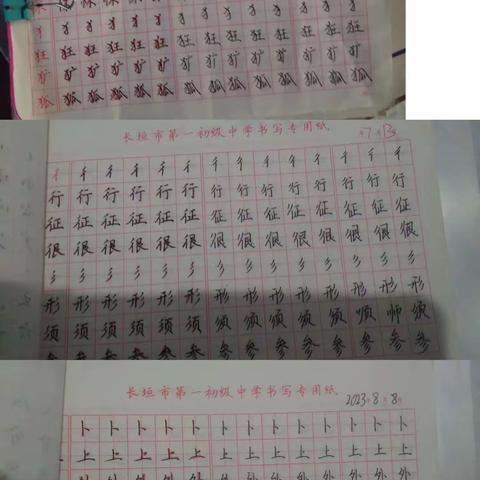 犭 犭 犭 犭 犭 犭 犭 犭 犭 犭 犭 犭 犭 犭
狂 狂 狂 狂 狂 狂 狂 狂 狂 狂 狂 狂 狂 狂
犷 犷 犷 犷 犷 犷 犷 犷 犷 犷 犷 犷 犷 犷
狐 狐 狐 狐 狐 狐 狐 狐 狐 狐 狐 狐 狐 狐
长垣市第一初级中学书写专用纸
彳 彳 彳 彳 彳 彳 彳 彳 彳 彳 彳 彳 彳 彳
行 行 行 行 行 行 行 行 行 行 行 行 行 行
征 征 征 征 征 征 征 征 征 征 征 征 征 征
很 很 很 很 很 很 很 很 很 很 很 很 很 很
彡 彡 彡 彡 彡 彡 彡 彡 彡 彡 彡 彡 彡 彡
形 形 形 形 形 形 形 形 形 形 形 形 形 形
须 须 须 须 须 须 须 须 须 须 须 顺 师 须
参 参 参 参 参 参 参 参 参 参 参 参 参 参
长垣市第一初级中学书写专用纸 2023年8月8日
卜 卜 卜 卜 卜 卜 卜 卜 卜 卜 卜 卜 卜
上 上 上 上 上 上 上 上 上 上 上 上 上
外 外 外 外 外 外 外 外 外 外 外 外 外